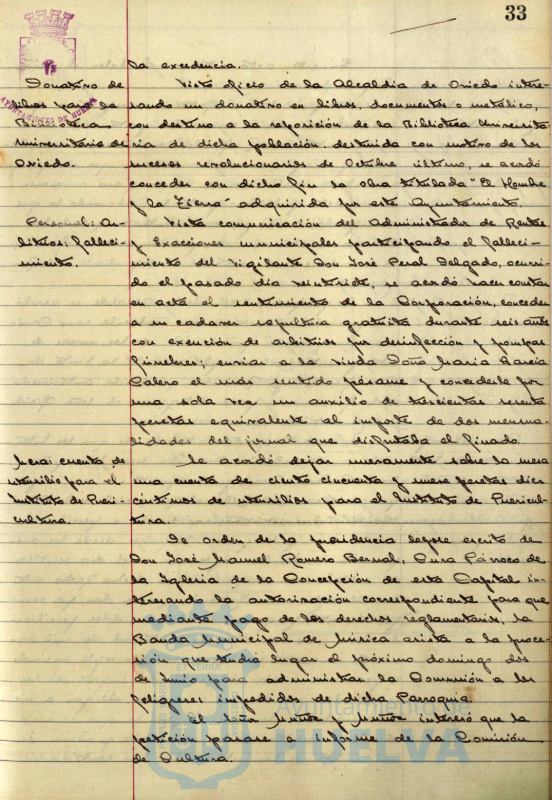 33
la excedencia.
Donativo de
libros para la
Biblioteca
universitaria de
Oviedo.
Visto oficio de la Alcaldía de Oviedo intere-
sando un donativo en libros, documentos o metálico,
con destino a la reposición de la Biblioteca Universita
ria de dicha población, destruida con motivo de los
sucesos revolucionarios de Octubre último, se acordó
conceder con dicho fin la obra titulada "El Hombre
y la Tierra" adquirida por este Ayuntamiento.
Personal: Ar-
bitrios: falleci-
miento.
Vista comunicación del Administrador de Rentas
y Exacciones municipales participando el falleci-
miento del vigilante Don José Peral Delgado, ocurri-
do el pasado día veintisiete, se acordó hacer constar
en acta el sentimiento de la Corporación, conceder
a su cadaver sepultura gratuita durante seis años
con exención de arbitrios por desinfección y pompas
fúnebres; enviar a la viuda Doña María García
Calero el más sentido pésame y concederle por
una sola vez un auxilio de trescientas sesenta
pesetas equivalente al importe de dos mensua-
lidades del jornal que disfrutaba el finado.
Mesa: cuenta de
utensilio para el
Instituto de Pueri-
cultura.
Se acordó dejar nuevamente sobre la mesa
una cuenta de ciento cincuenta y nueve pesetas diez
céntimos de utensilios para el Instituto de Puericul-
tura.
De orden de la presidencia leyose escrito de
Don José Manuel Romero Bernal, Cura Párroco de
la Iglesia de la Concepción de esta Capital in-
teresando la autorización correspondiente para que
mediante pago de los derechos reglamentarios, la
Banda Municipal de Música asista a la proce-
sión que tendrá lugar el próximo domingo dos
de Junio para administrar la Comunión a los
feligreses impedidos de dicha Parroquia.
El señor Muñoz y Muñoz interesó que la
petición pasase a informe de la Comisión
de Cultura.
Ayuntamiento de
HUELVA